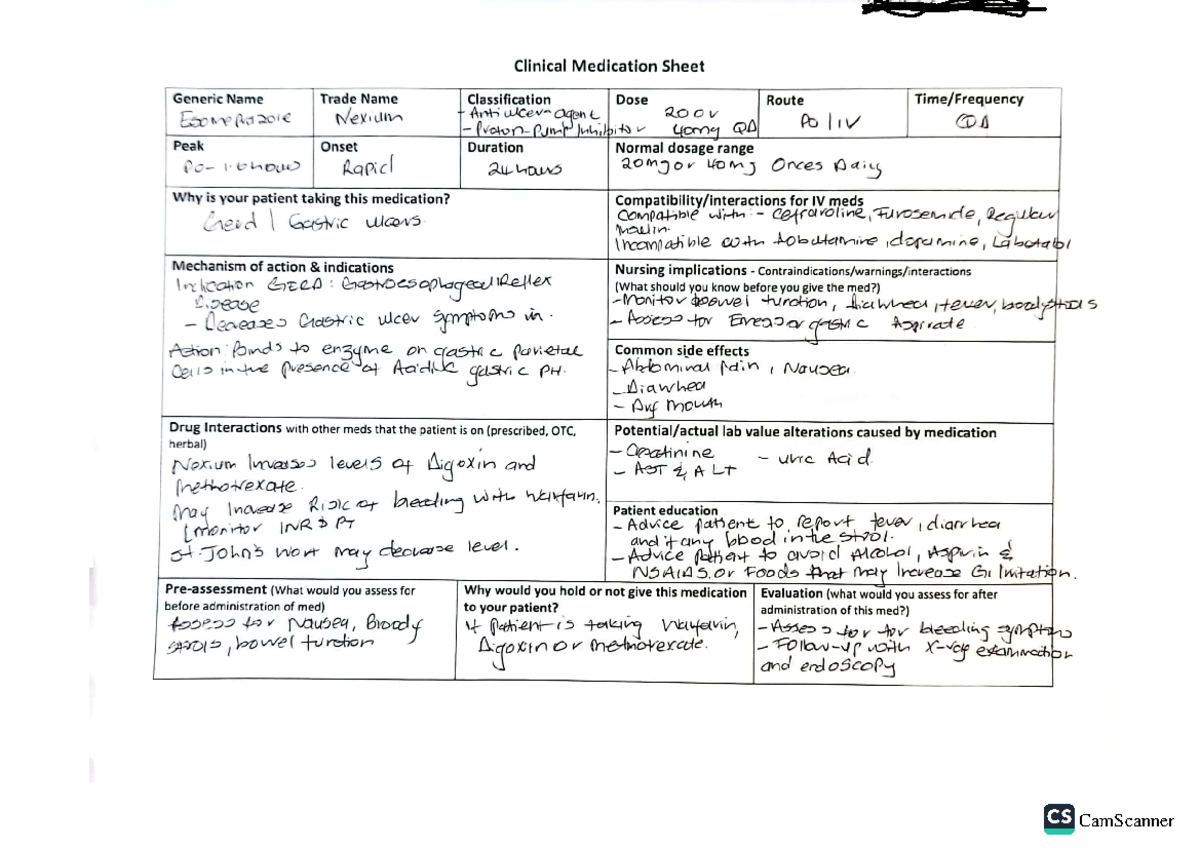 Clinical Medication Sheet
Generic Name
Esomeprazole
Trade Name
Nexium
Classification
- Antiulcer agent
- Proton-Pump Inhibitor
Dose
20 or
40mg QD
Route
PO / IV
Time/Frequency
QD
Peak
PO- 1.6 hours
Onset
Rapid
Duration
24 hours
Normal dosage range
20mg or 40mg Onces Daily
Why is your patient taking this medication?
Gerd / Gastric ulcers.
Compatibility/interactions for IV meds
Compatible with :- Ceftaroline, Furosemide, Regular
Insulin.
Incompatible with dobutamine, dopamine,
Mechanism of action & indications
Indication GERD : Gastroesophageal Reflex
Disease
- Decreases Gastric ulcer symptoms in.
Action: Binds to enzyme on gastric parietal
Cells in the presence of Acidic gastric PH.
Nursing implications - Contraindications/warnings/interactions
(What should you know before you give the med?)
- Monitor bowel function, diarrhea, fever, bloody stools
- Assess for gastric Aspirate
Common side effects
- Abdominal Pain, Nausea.
- Diarrhea
- Dry mouth
Drug Interactions with other meds that the patient is on (prescribed, OTC,
herbal)
Nexium Increases levels of Digoxin and
methotrexate.
May Increase Risk of bleeding with Warfarin.
[monitor INR & PT
St John's Wort may decrease level.
Potential/actual lab value alterations caused by medication
- Creatinine - Uric Acid.
- AST & ALT
Patient education
- Advice patient to report fever, diarrhea
and if any blood in the stool.
- Advice patient to avoid Alcohol, Aspirin &
NSAIDS. or Foods that may Increase GI Irritation.
Pre-assessment (What would you assess for
before administration of med)
Assess for Nausea, Bloody
stools, bowel function
Why would you hold or not give this medication
to your patient?
If patient is taking Warfarin,
Digoxin or methotrexate.
Evaluation (what would you assess for after
administration of this med?)
- Assess for for bleeding symptoms
- Follow-up with X-ray examination
and endoscopy
CS CamScanner